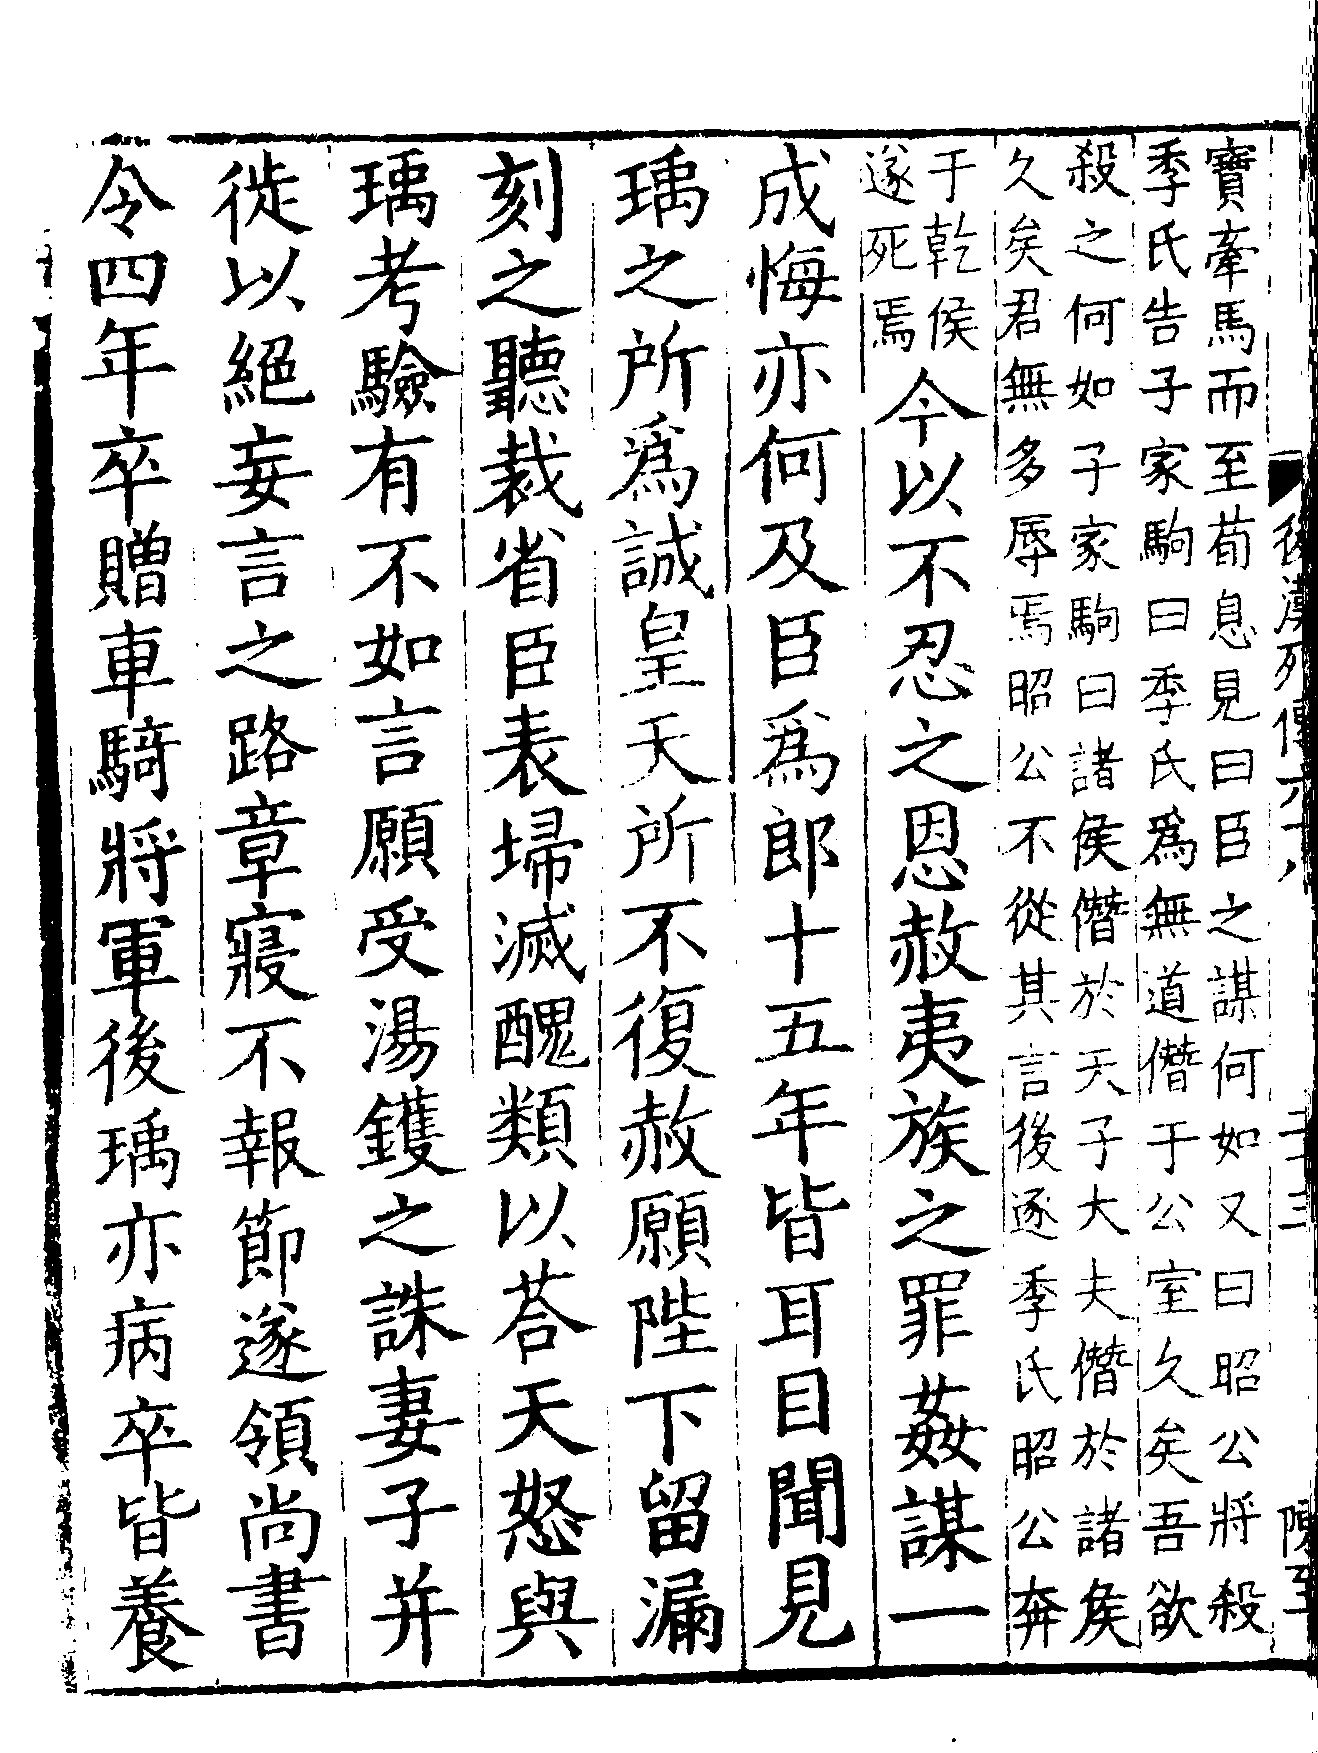 寶牽馬而至荀息見曰臣之謀何如又曰昭公將殺
季氏告子家駒曰季氏爲無道僭于公室久矣吾欲
殺之何如子家駒曰諸侯僭於天子大夫僭於諸侯
久矣君無多辱焉昭公不從其言後逐季氏昭公奔
于乾侯
遂死焉
今以不忍之恩赦夷族之罪姦謀一
成悔亦何及臣爲郎十五年皆耳目聞見
瑀之所爲誠皇天所不復赦願陛下留漏
刻之聽裁省臣表埽滅醜類以荅天怒與
瑀考驗有不如言願受湯鑊之誅妻子并
徙以絕妄言之路章寢不報節遂領尚書
令四年卒贈車騎將軍後瑀亦病卒皆養
後漢列傳六十八
二十三
陳至